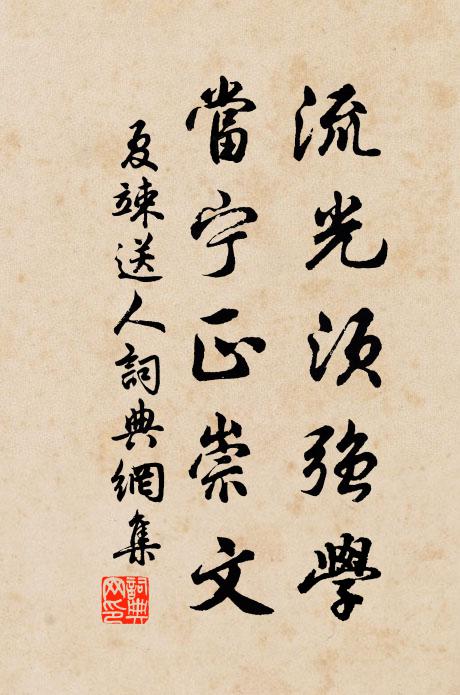 流光須強學
當宁正崇文
夏竦送人詞典網集
詞典網印